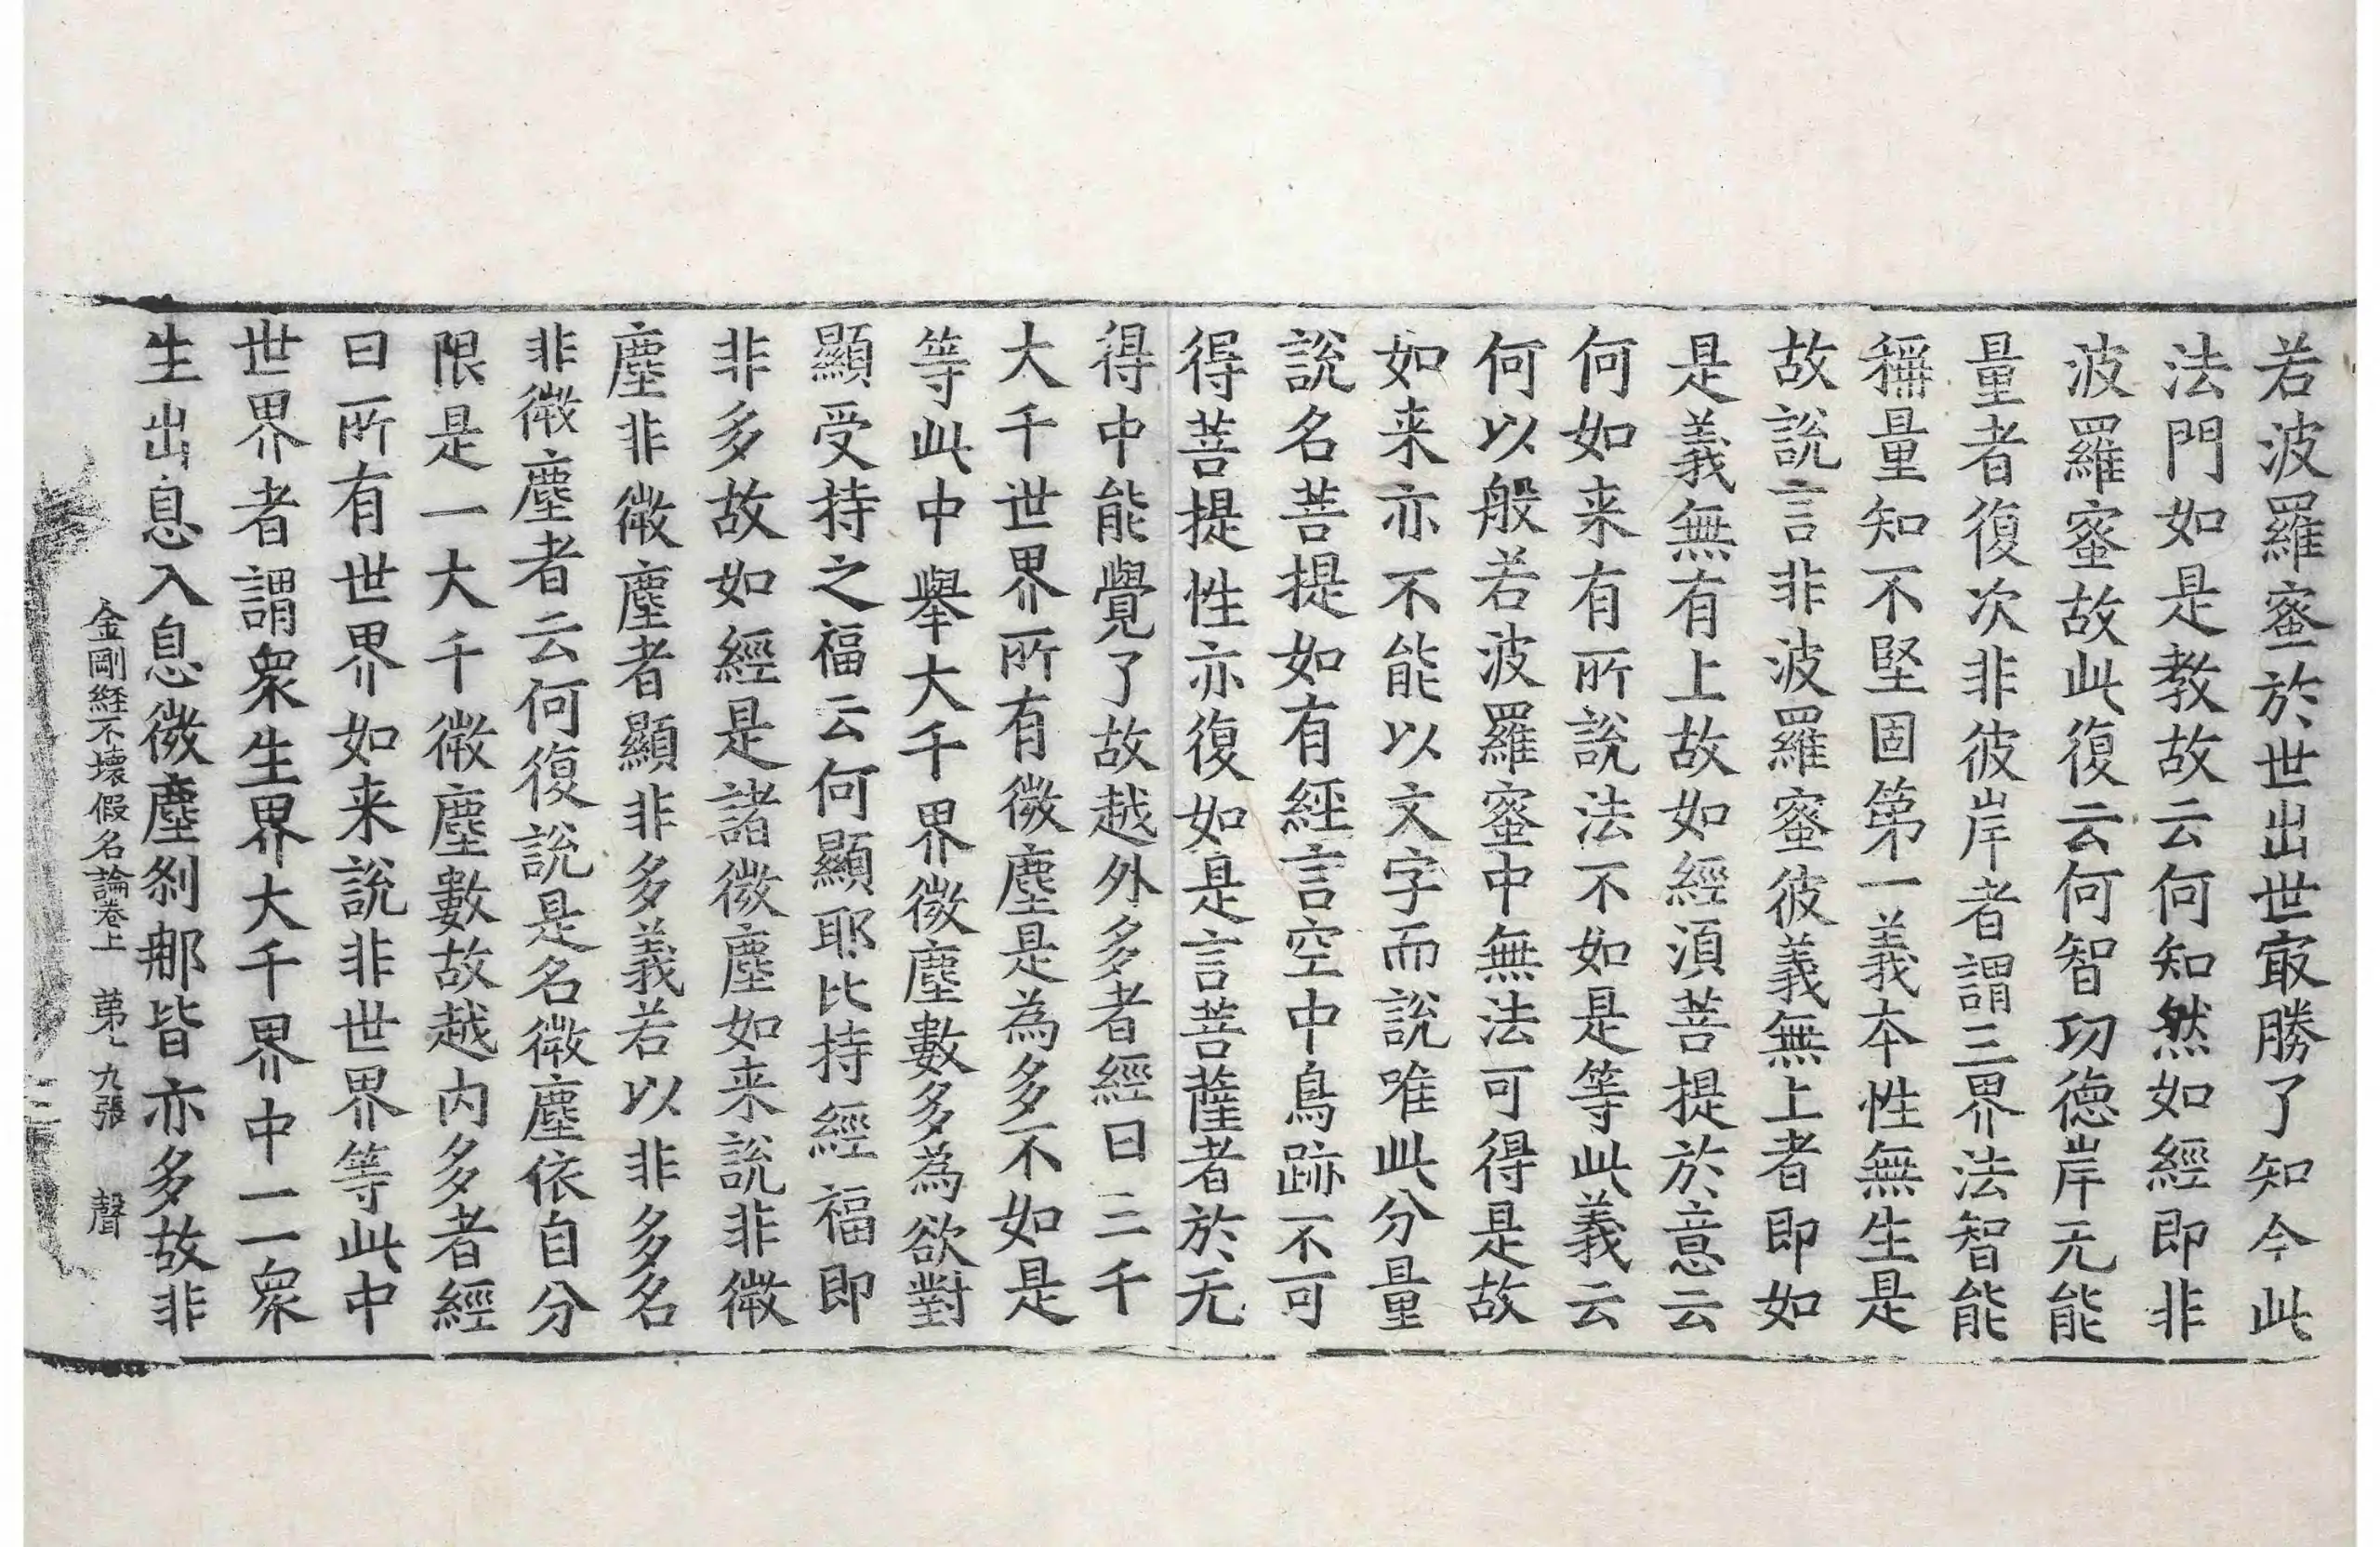 若波羅蜜於世出世㝡勝了知今此
法門如是教故云何知然如經即非
波羅蜜故此復云何智功德岸无能
量者復次非彼岸者謂三界法智能
稱量知不堅固第一義本性無生是
故說言非波羅蜜彼義無上者即如
是義無有上故如經湏菩提於意云
何如来有所說法不如是等此義云
何以般若波羅蜜中無法可得是故
如来亦不能以文字而說唯此分量
說名菩提如有經言空中鳥跡不可
得菩提性亦復如是言菩薩者於无
得中能覺了故越外多者經曰三千
大千世界所有微塵是為多不如是
等此中舉大千界微塵數多為欲對
顯受持之福云何顯耶比持經福即
非多故如經是諸微塵如来說非微
塵非微塵者顯非多義若以非多名
非微塵者云何復說是名微塵依自分
限是一大千微塵數故越内多者經
曰所有世界如来說非世界等此中
世界者謂衆生界大千界中一一衆
生出息入息微塵剎那皆亦多故非
金剛経不壞假名論卷上 苐九張 聲